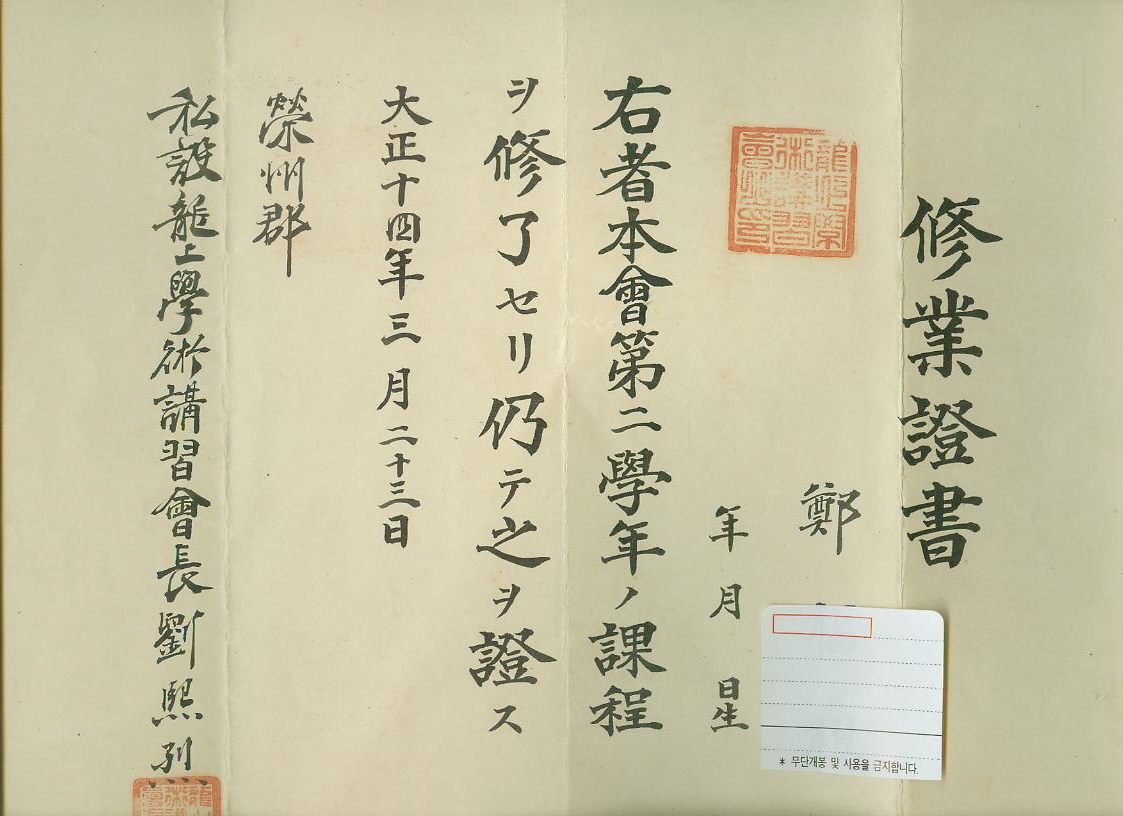 修業證書
鄭
年月日生
右者本會第二學年ノ課程
ヲ修了セリ仍テ之ヲ證ス
大正十四年三月二十三日
榮州郡
私設龍上學術講習會長劉熙烈
* 무단개봉 및 사용을 금지합니다.